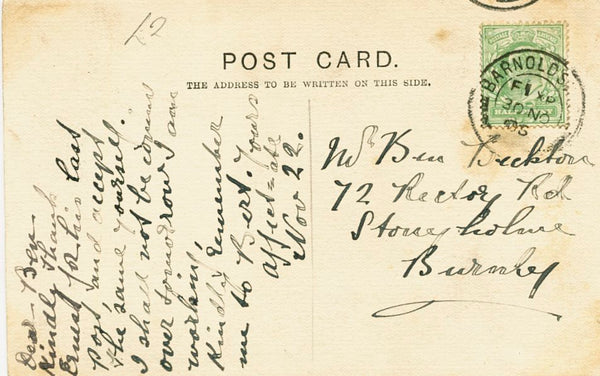 12
POST CARD.
THE ADDRESS TO BE WRITTEN ON THIS SIDE.
BARNOLDS
30 NO
05
HALF
Mr Ben
72 Rectory Rd
Stoneyholme
Burnley
Dear Ben.
Kindly thank
Ernest for his last
Post, and accept
the same yourself.
I shall not be coming
over tomorrow I am
working,
Kindly remember
me to Bert. Yours
affect
Nov 22.